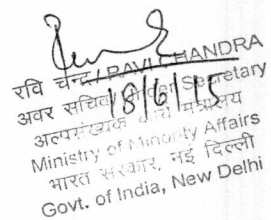 रवि चन्द्र/RAVI CHANDRA
अवर सचिव/Under Secretary
18/6/15
अल्पसंख्यक कार्य मंत्रालय
Ministry of Minority Affairs
भारत सरकार, नई दिल्ली
Govt. of India, New Delhi